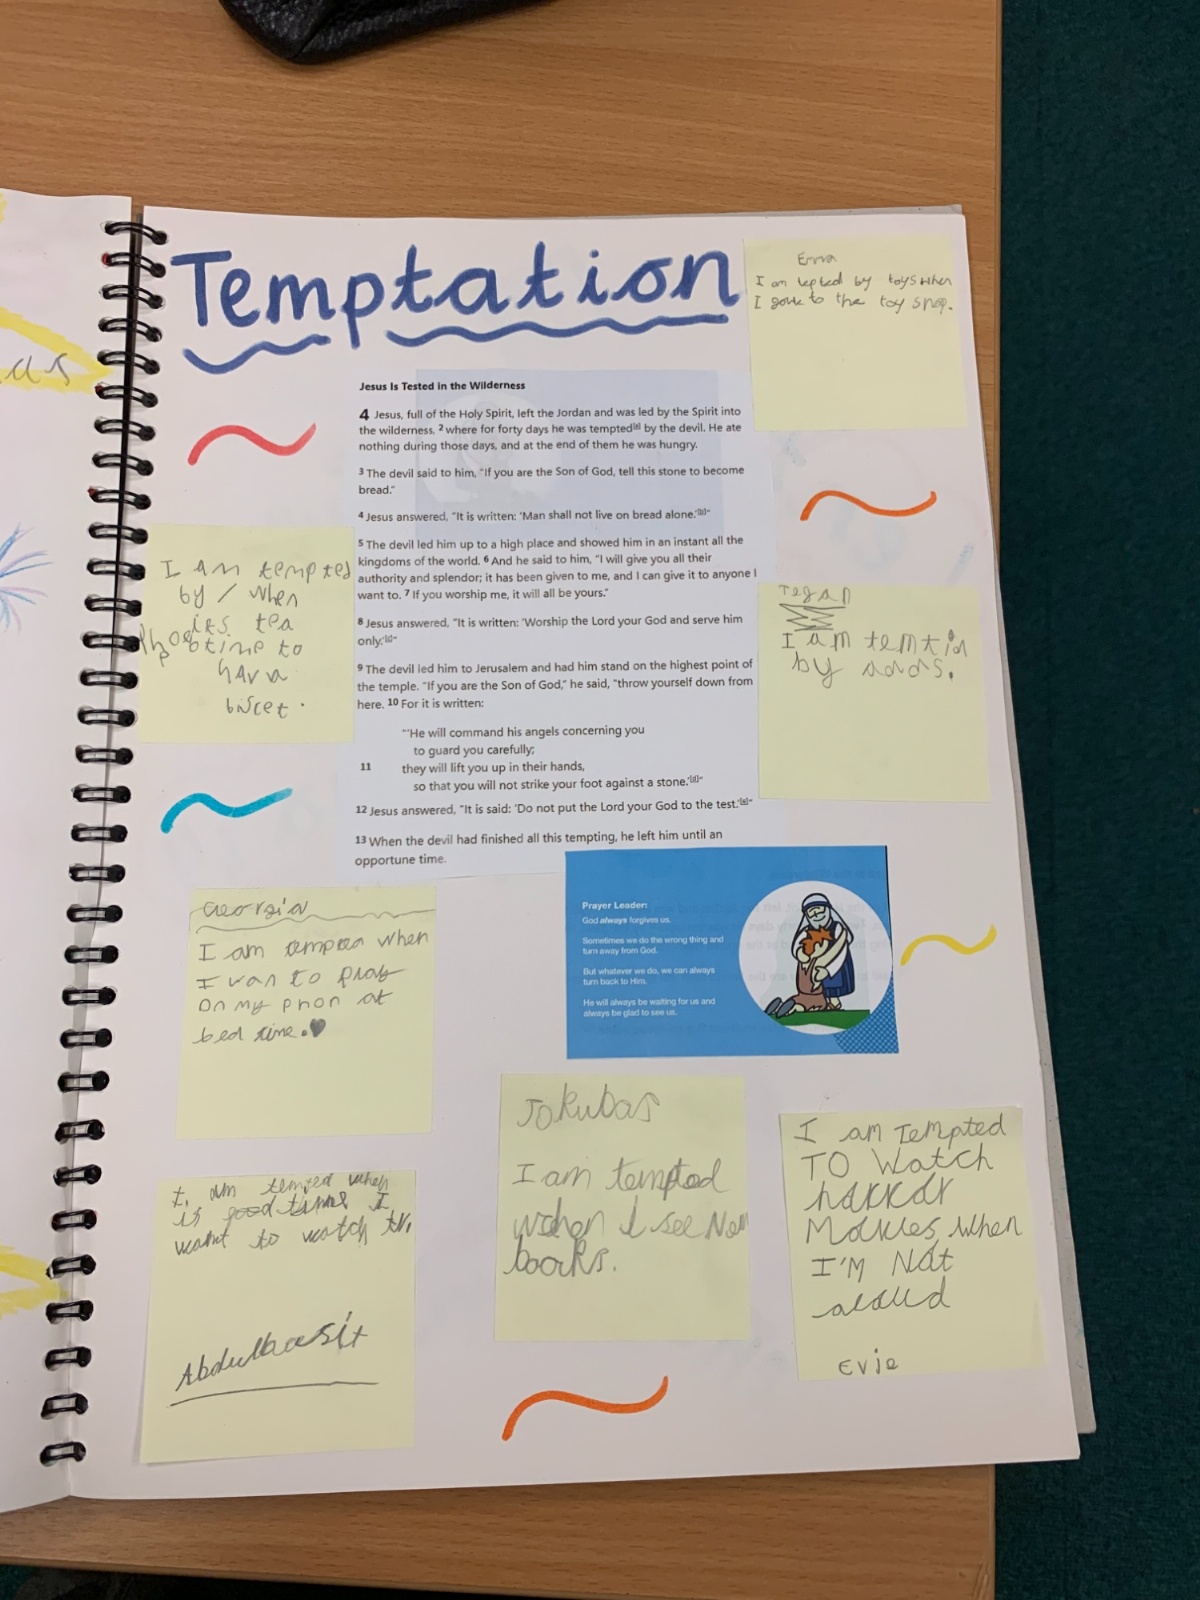 us
Temptation
Emma
I am tepted by toys when
I gowe to the toy shop.
Jesus Is Tested in the Wilderness
4 Jesus, full of the Holy Spirit, left the Jordan and was led by the Spirit into
the wilderness, 2 where for forty days he was tempted[a] by the devil. He ate
nothing during those days, and at the end of them he was hungry.
3 The devil said to him, "If you are the Son of God, tell this stone to become
bread."
4 Jesus answered, "It is written: 'Man shall not live on bread alone.'[b]"
5 The devil led him up to a high place and showed him in an instant all the
kingdoms of the world. 6 And he said to him, "I will give you all their
authority and splendor; it has been given to me, and I can give it to anyone I
want to. 7 If you worship me, it will all be yours."
8 Jesus answered, "It is written: 'Worship the Lord your God and serve him
only.'[c]"
9 The devil led him to Jerusalem and had him stand on the highest point of
the temple. "If you are the Son of God," he said, "throw yourself down from
here. 10 For it is written:
"'He will command his angels concerning you
to guard you carefully;
11 they will lift you up in their hands,
so that you will not strike your foot against a stone.'[d]"
12 Jesus answered, "It is said: 'Do not put the Lord your God to the test.'[e]"
13 When the devil had finished all this tempting, he left him until an
opportune time.
I am tempted
by / when
its tea
time to
hava
biscet.
Tegan
I am temtid
by
Georgia
I am tempted when
I wan to play
on my phon at
bed time.
Prayer Leader:
God always forgives us.
Sometimes we do the wrong thing and
turn away from God.
But whatever we do, we can always
turn back to Him.
He will always be waiting for us and
always be glad to see us.
Jokubas
I am tempted
when I see New
books.
I am Tempted
TO Watch
harrar
Movies when
I'M Not
aloud
Evie
I am temped when
is time I
want to watch tv.
Abdulbasit